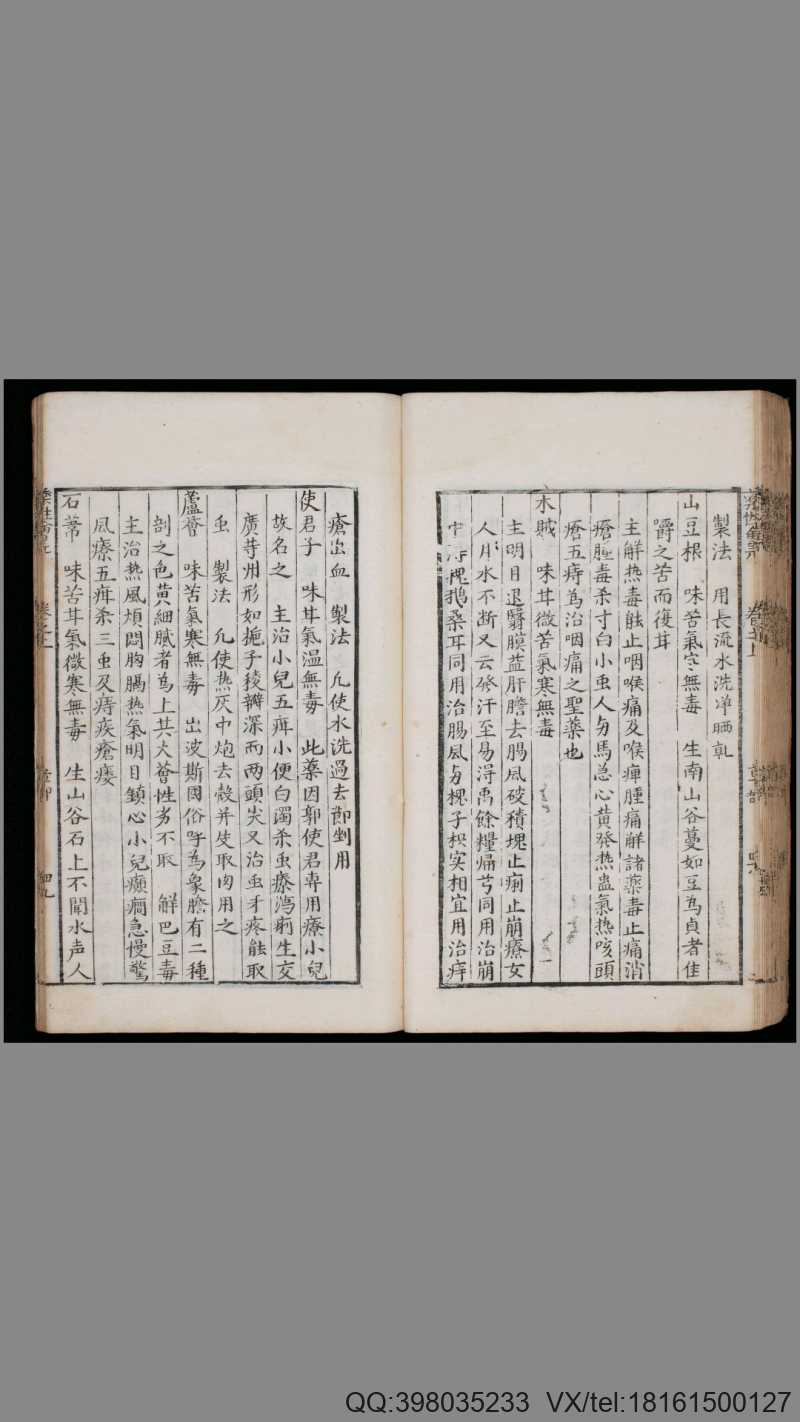 製法　用長流水洗净晒乾
山豆根　味苦氣寒無毒　生南山谷蔓如豆為貞者佳
嚼之苦而復苷
主觧热毒能止咽喉痛及喉痺腫痛觧諸藥毒止痛消
瘡腫毒杀寸白小虫人与馬急心黄發热蛊氣热咳頭
瘡五痔為治咽痛之聖藥也
木賊　味苷微苦氣寒無毒
主明目退翳膜益肝膽去腸風破積塊止痢止崩療女
人月水不断又云發汗至易淂禹餘糧當芎同用治崩
中 槐鵝桑耳同用治腸風与槐子枳实相宜用治痔
瘡出血　製法　凢使水洗過去節剉用
使君子　味苷氣温無毒　此藥因郭使君専用療小兒
故名之　主治小兒五疳小便白濁杀虫療瀉痢生交
廣䓁州形如梔子稜瓣深而两頭尖又治虫牙疼能取
虫　製法　凢使热灰中炮去殼并皮取肉用之
蘆薈　味苦氣寒無毒　出波斯國俗呼為象膽有二種
剖之色黄細膩者為上其大薈性劣不取　觧巴豆毒
主治热風煩悶胸膈热氣明目鎮心小兒癲癇急慢驚
風療五疳杀三虫及痔疾瘡瘘
石葦　味苦苷氣微寒無毒　生山谷石上不聞水声人
QQ:398035233 VX/tel:18161500127